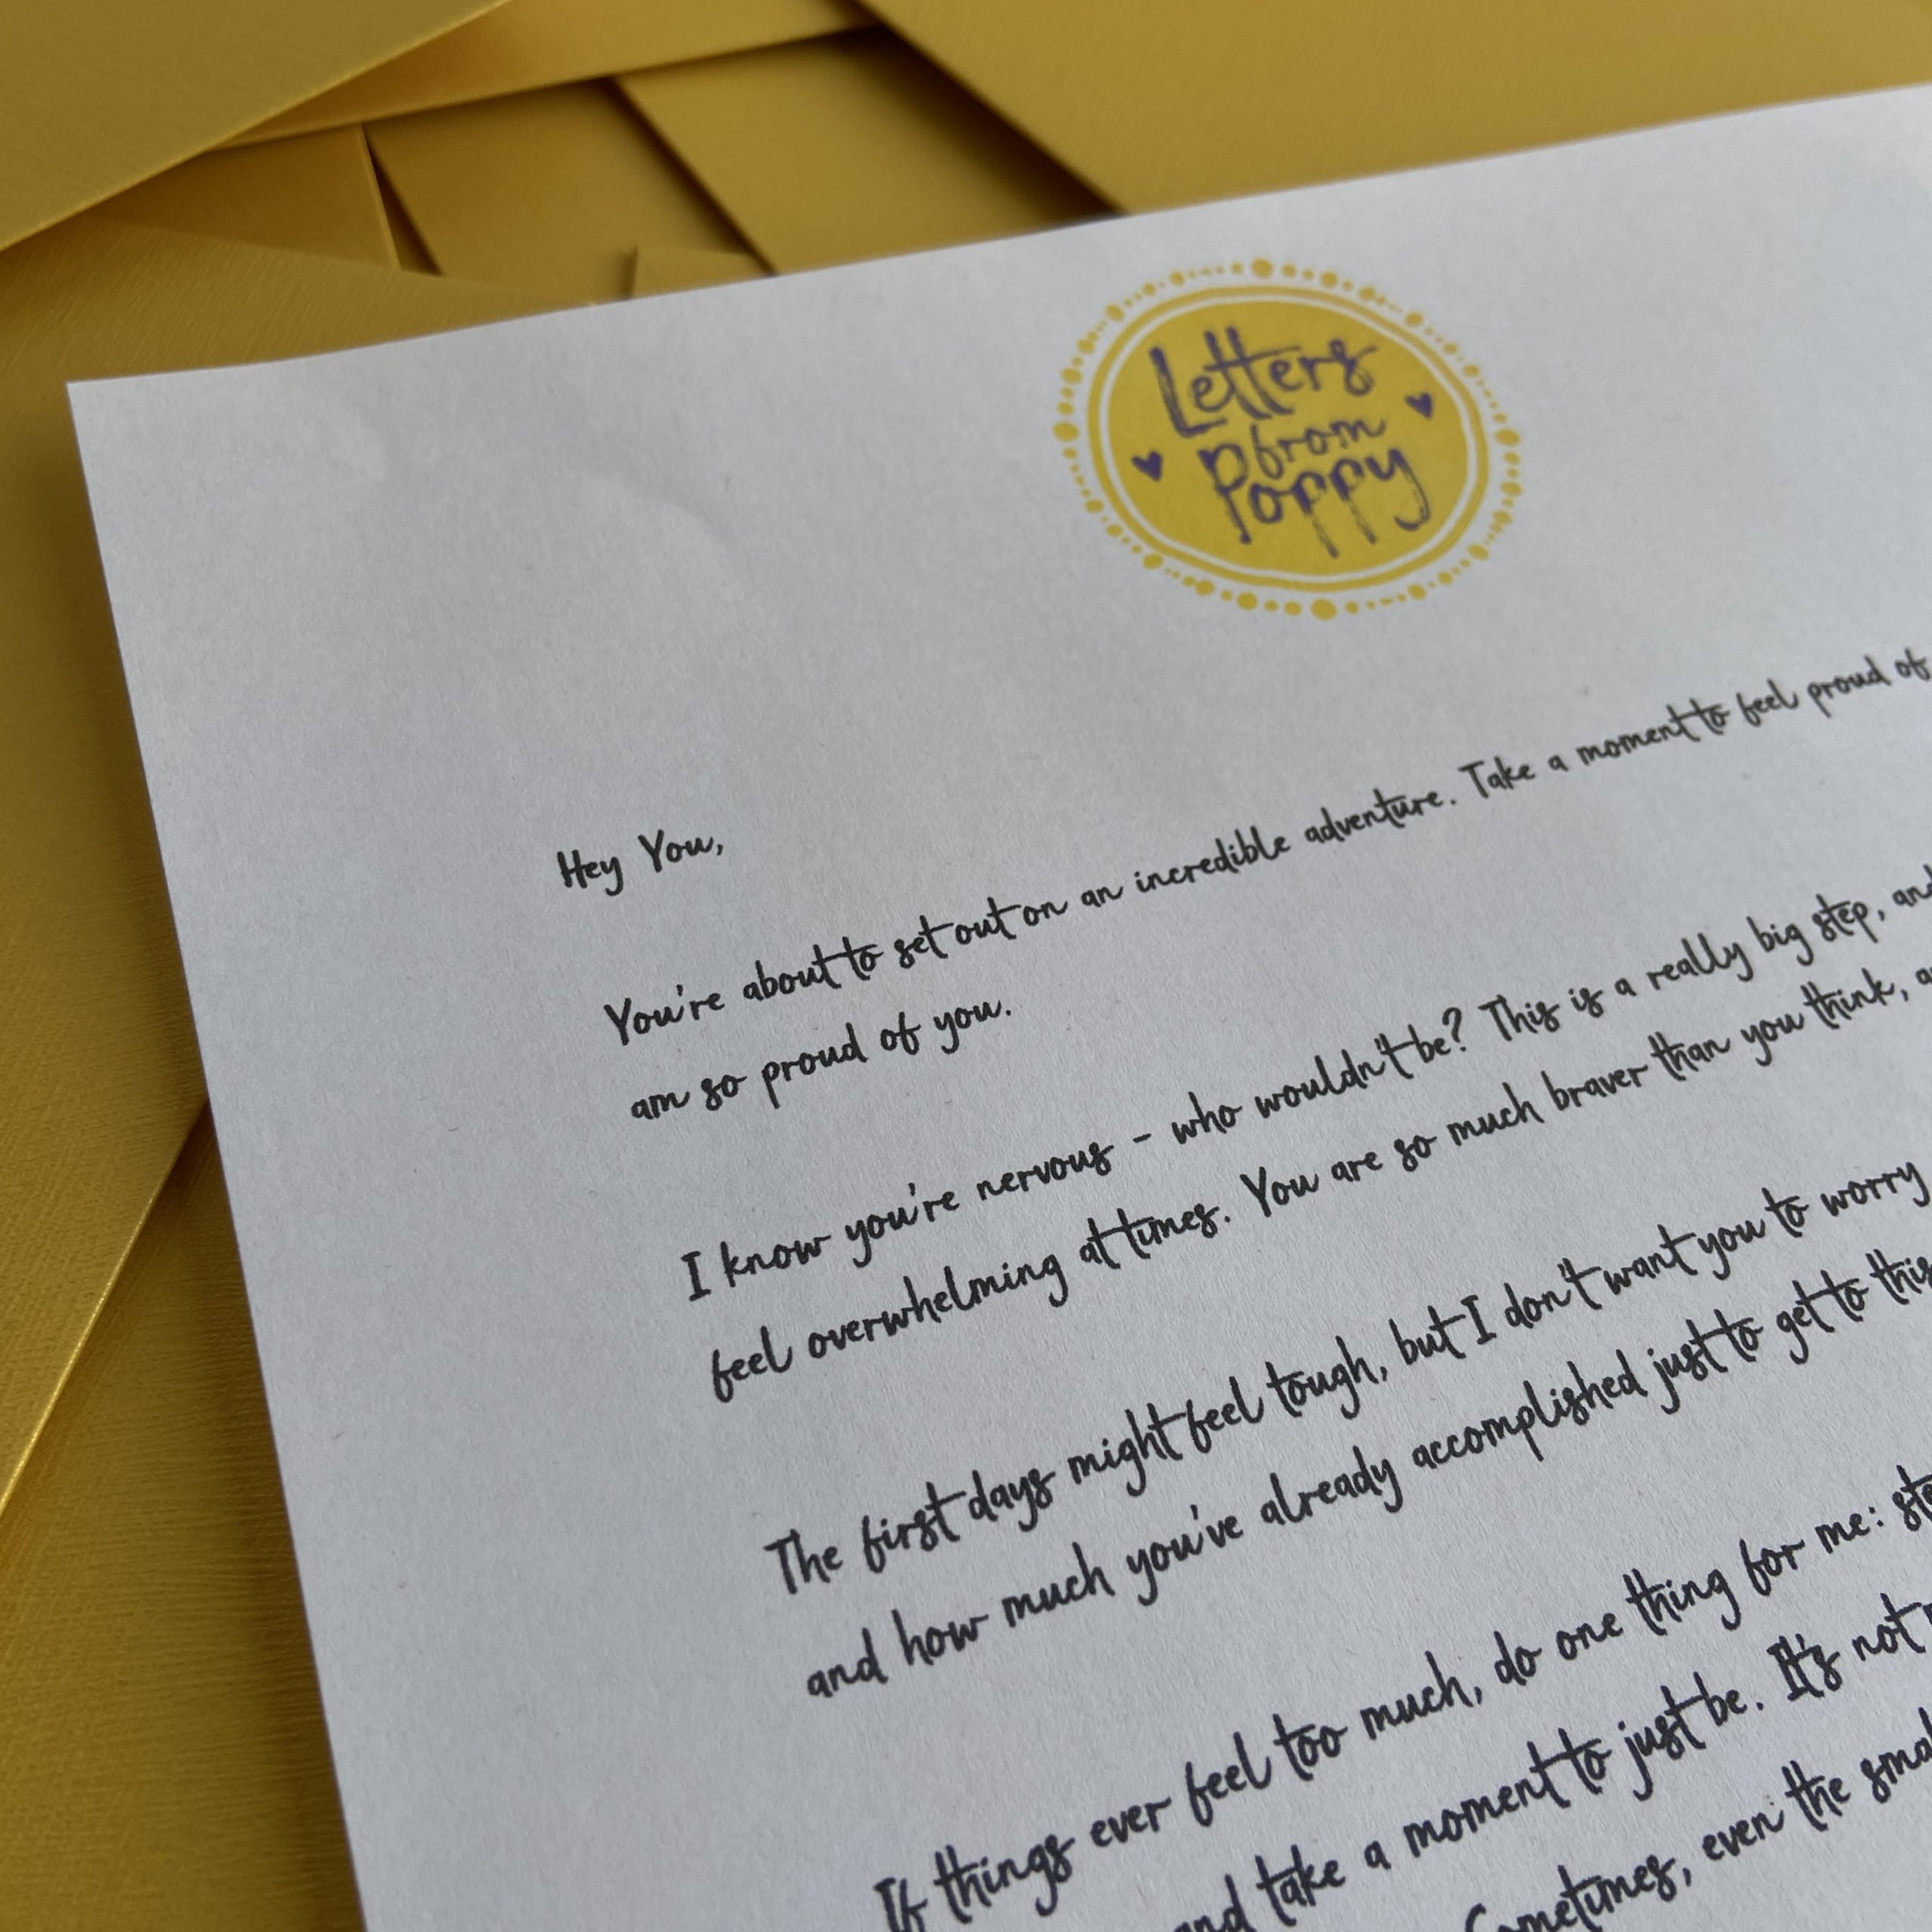 Letters
from
Poppy
Hey You,
You're about to set out on an incredible adventure. Take a moment to feel proud of
am so proud of you.
I know you're nervous - who wouldn't be? This is a really big step, and
feel overwhelming at times. You are so much braver than you think,
The first days might feel tough, but I don't want you to worry
and how much you've already accomplished just to get to this
If things ever feel too much, do one thing for me:
and take a moment to just be. It's not
Sometimes, even the